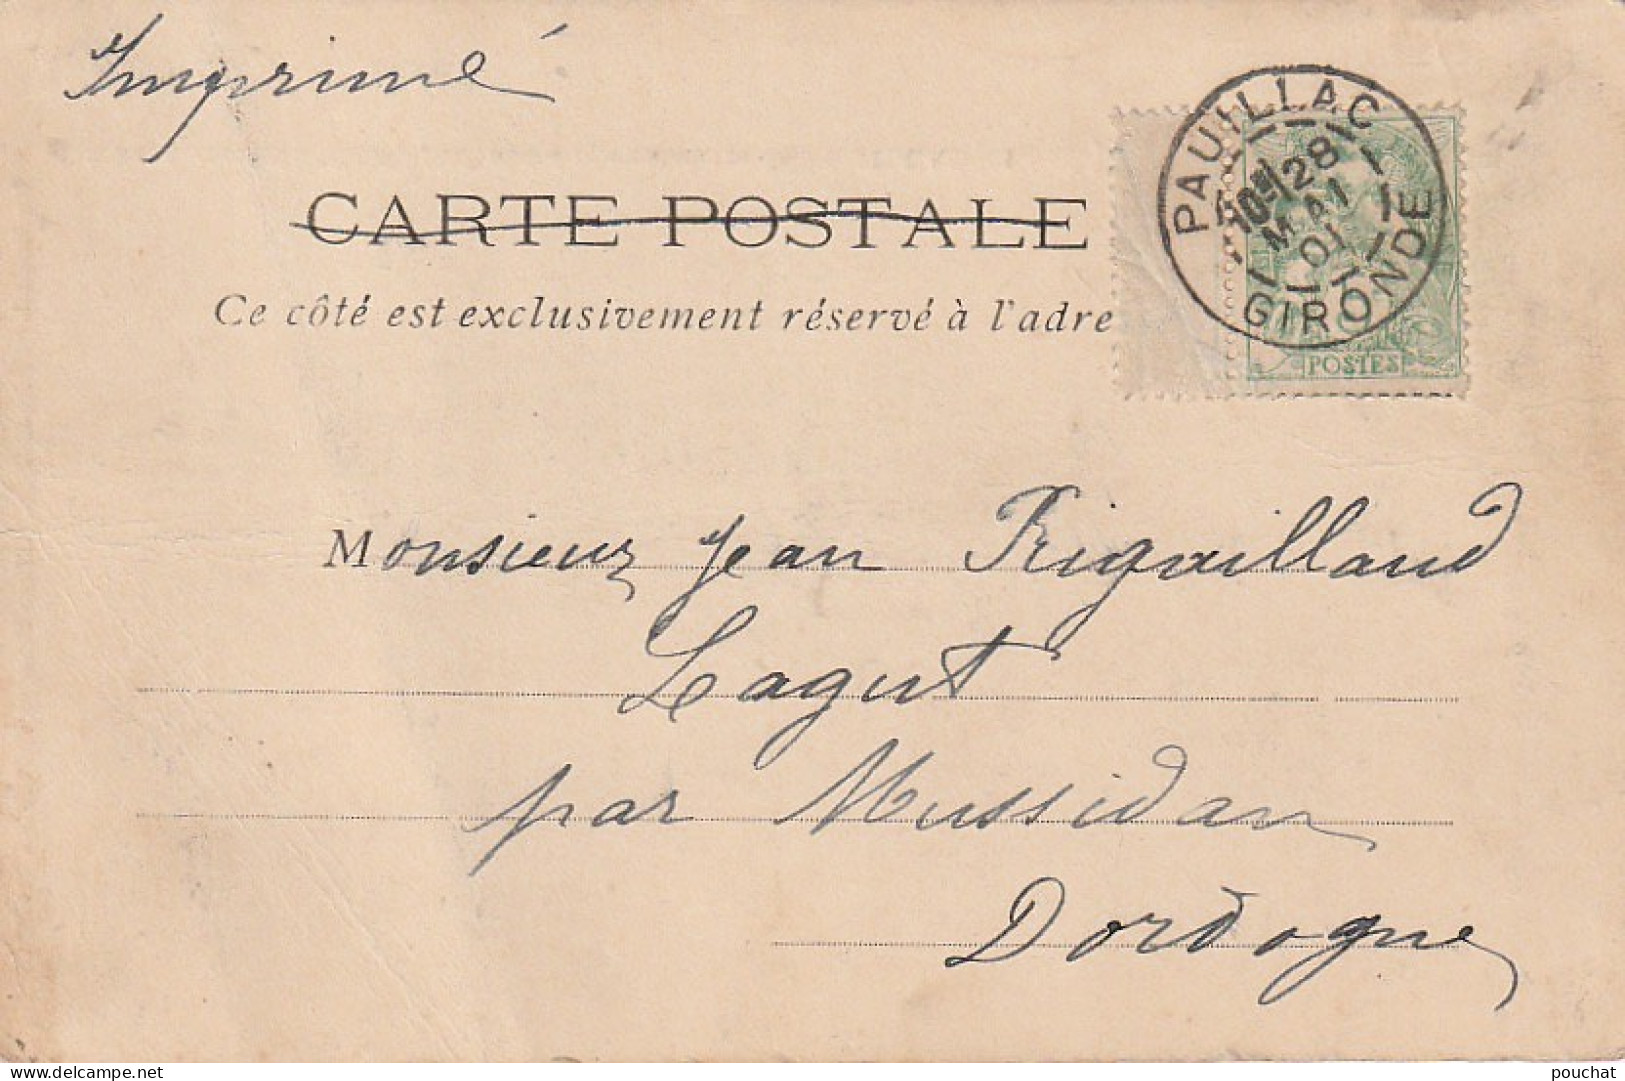 Imprimé
CARTE POSTALE
Ce côté est exclusivement réservé à l'adre
PAUILLAC
28
MAI
01
GIRONDE
POSTES
Monsieur Jean Rigaillaud
Lagut
par Mussidan
Dordogne
delcampe.net
pouchat